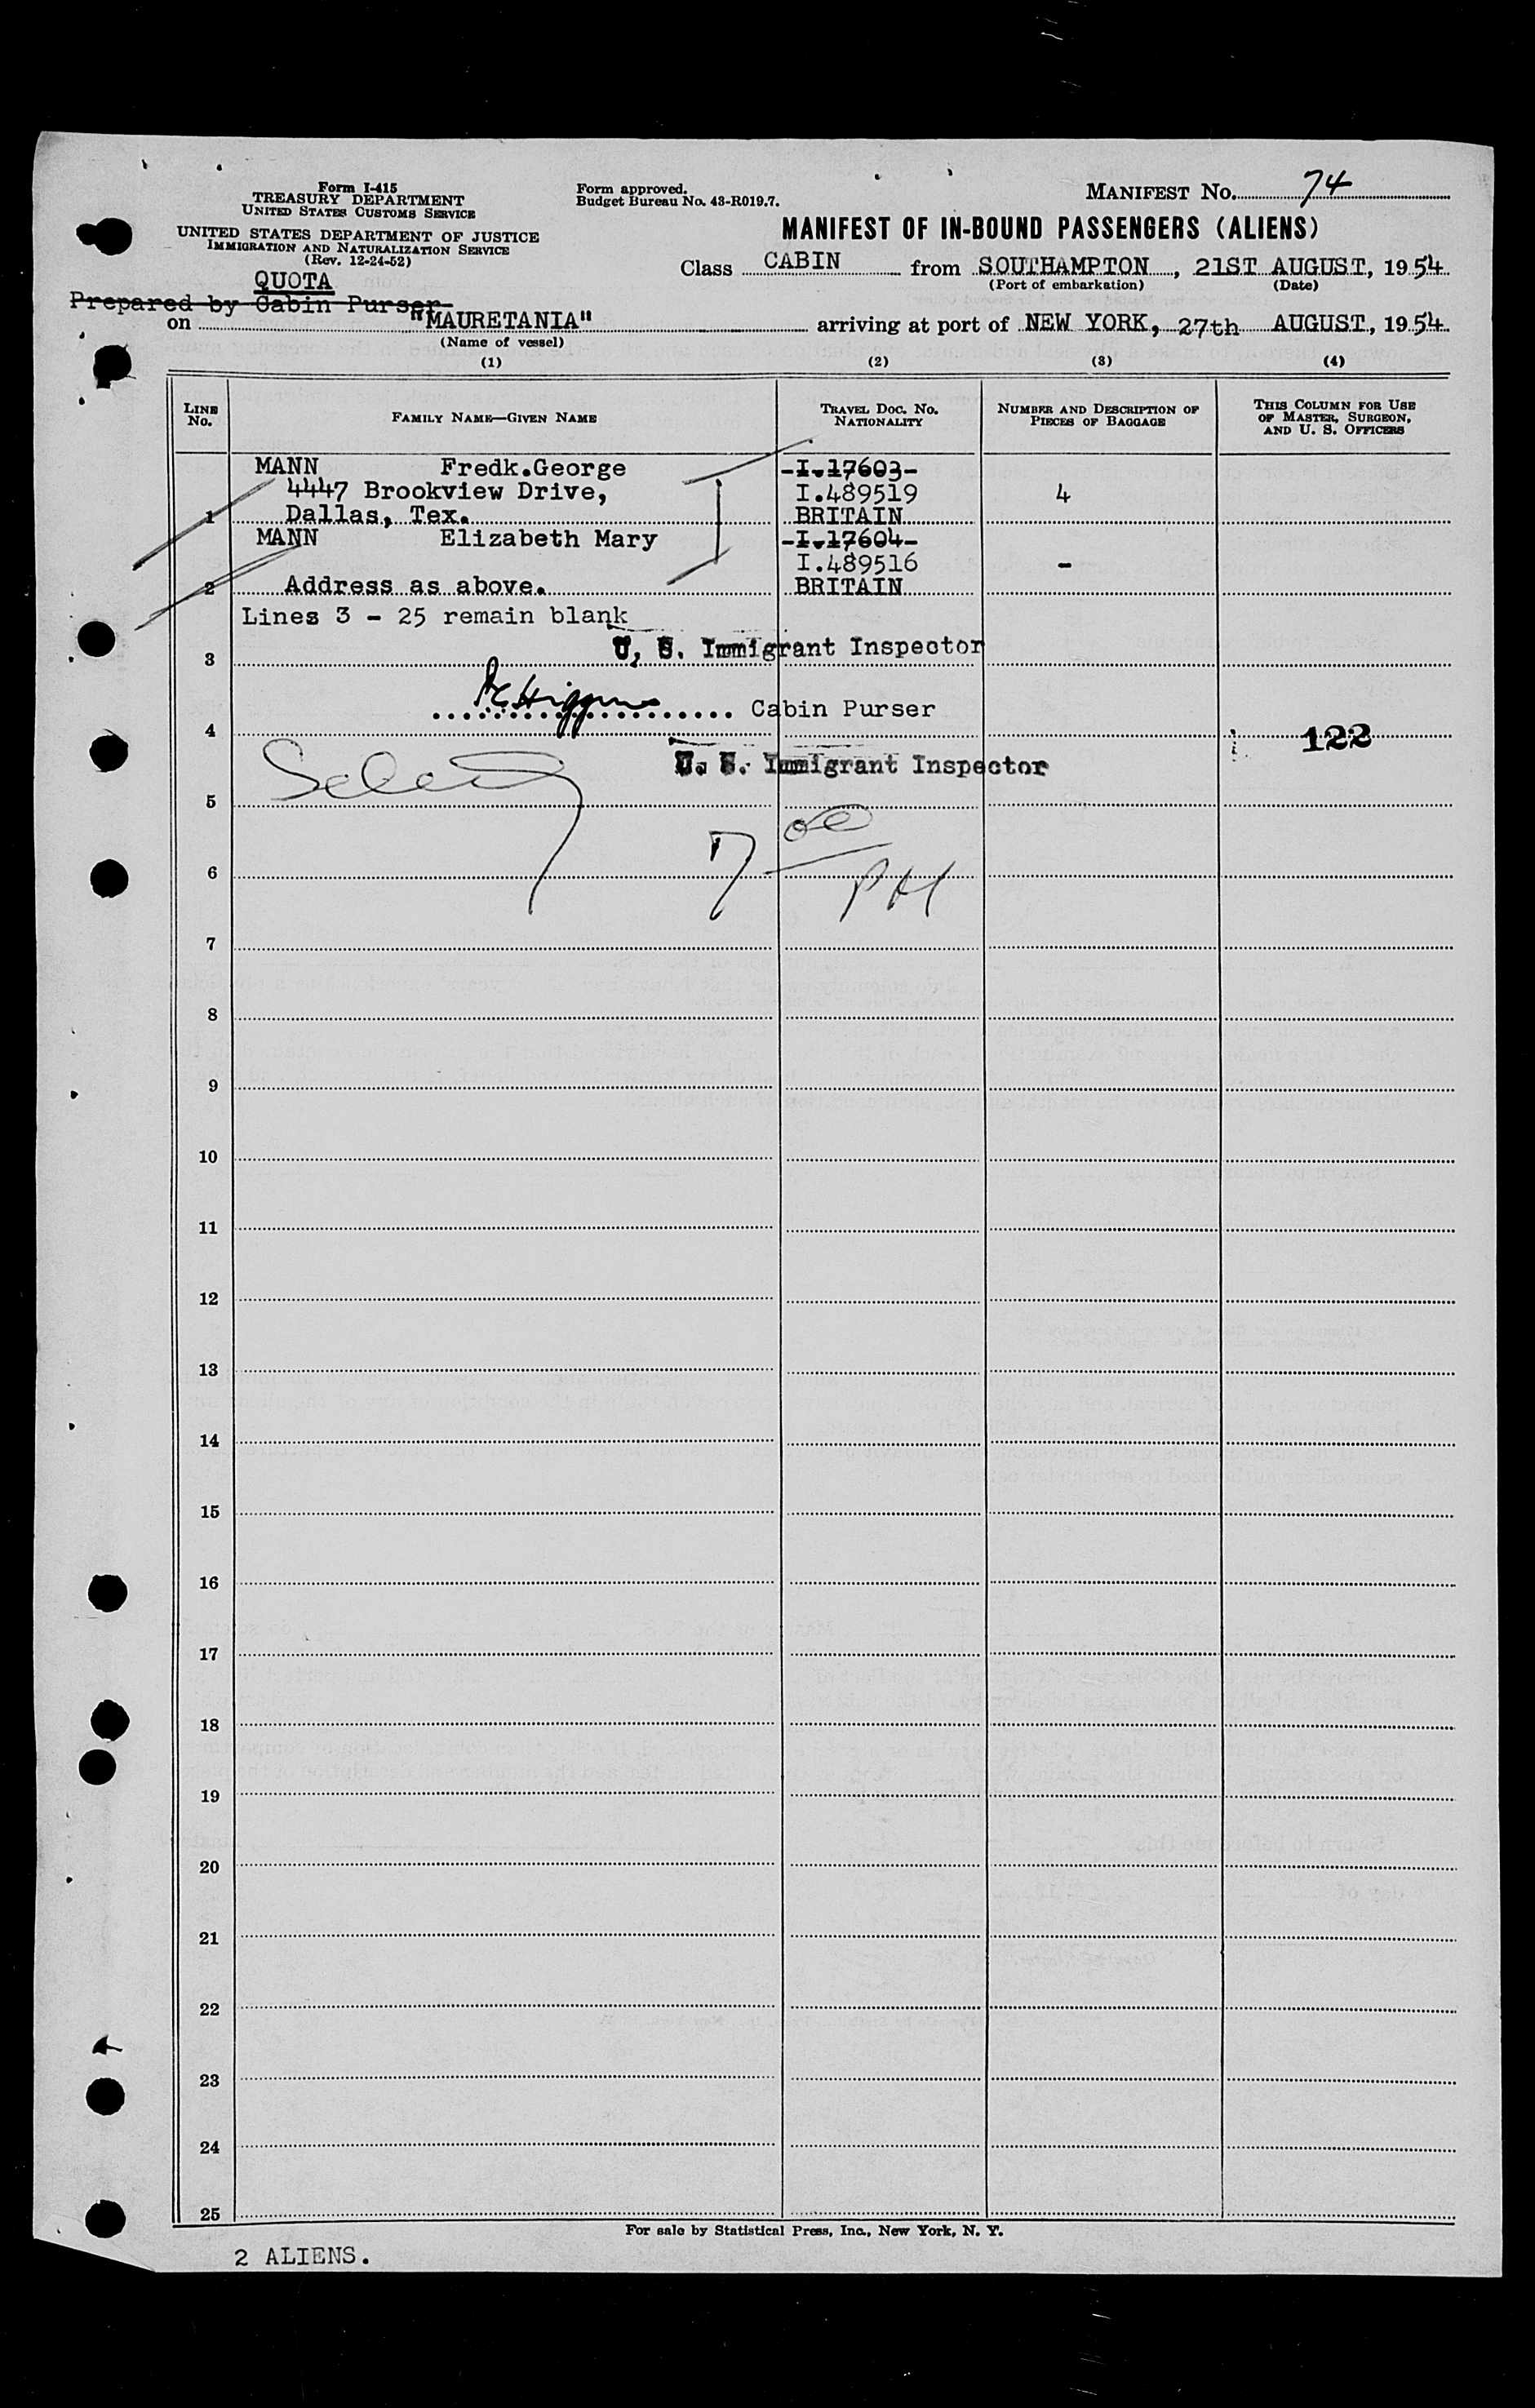 Form I-415
TREASURY DEPARTMENT
UNITED STATES CUSTOMS SERVICE
UNITED STATES DEPARTMENT OF JUSTICE
IMMIGRATION AND NATURALIZATION SERVICE
(Rev. 12-24-52)
Form approved.
Budget Bureau No. 43-R019.7.
MANIFEST No. 74
MANIFEST OF IN-BOUND PASSENGERS (ALIENS)
Class CABIN from SOUTHAMPTON, 21ST AUGUST, 1954
(Port of embarkation) (Date)
QUOTA
Prepared by Cabin Purser
on "MAURETANIA" arriving at port of NEW YORK, 27th AUGUST, 1954
(Name of vessel)
(1) (2) (3) (4)
LINE No. FAMILY NAME—GIVEN NAME TRAVEL DOC. NO. NATIONALITY NUMBER AND DESCRIPTION OF PIECES OF BAGGAGE THIS COLUMN FOR USE OF MASTER, SURGEON, AND U. S. OFFICERS
MANN Fredk.George -I.17603-
4447 Brookview Drive, I.489519 4
1 Dallas, Tex. BRITAIN
MANN Elizabeth Mary -I.17604-
I.489516 -
2 Address as above. BRITAIN
Lines 3 - 25 remain blank
U. S. Immigrant Inspector
3
Higgins Cabin Purser
4 122
U. S. Immigrant Inspector
5
7 00
6 PM
7
8
9
10
11
12
13
14
15
16
17
18
19
20
21
22
23
24
25
For sale by Statistical Press, Inc., New York, N. Y.
2 ALIENS.